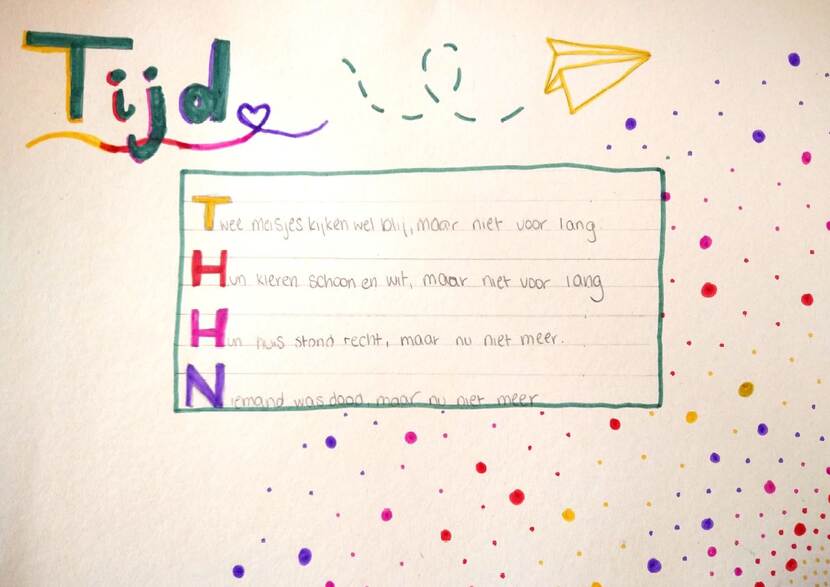 Tijd
Twee meisjes kijken wel blij, maar niet voor lang.
Hun kleren schoon en wit, maar niet voor lang
Hun huis stond recht, maar nu niet meer.
Niemand was dood, maar nu niet meer